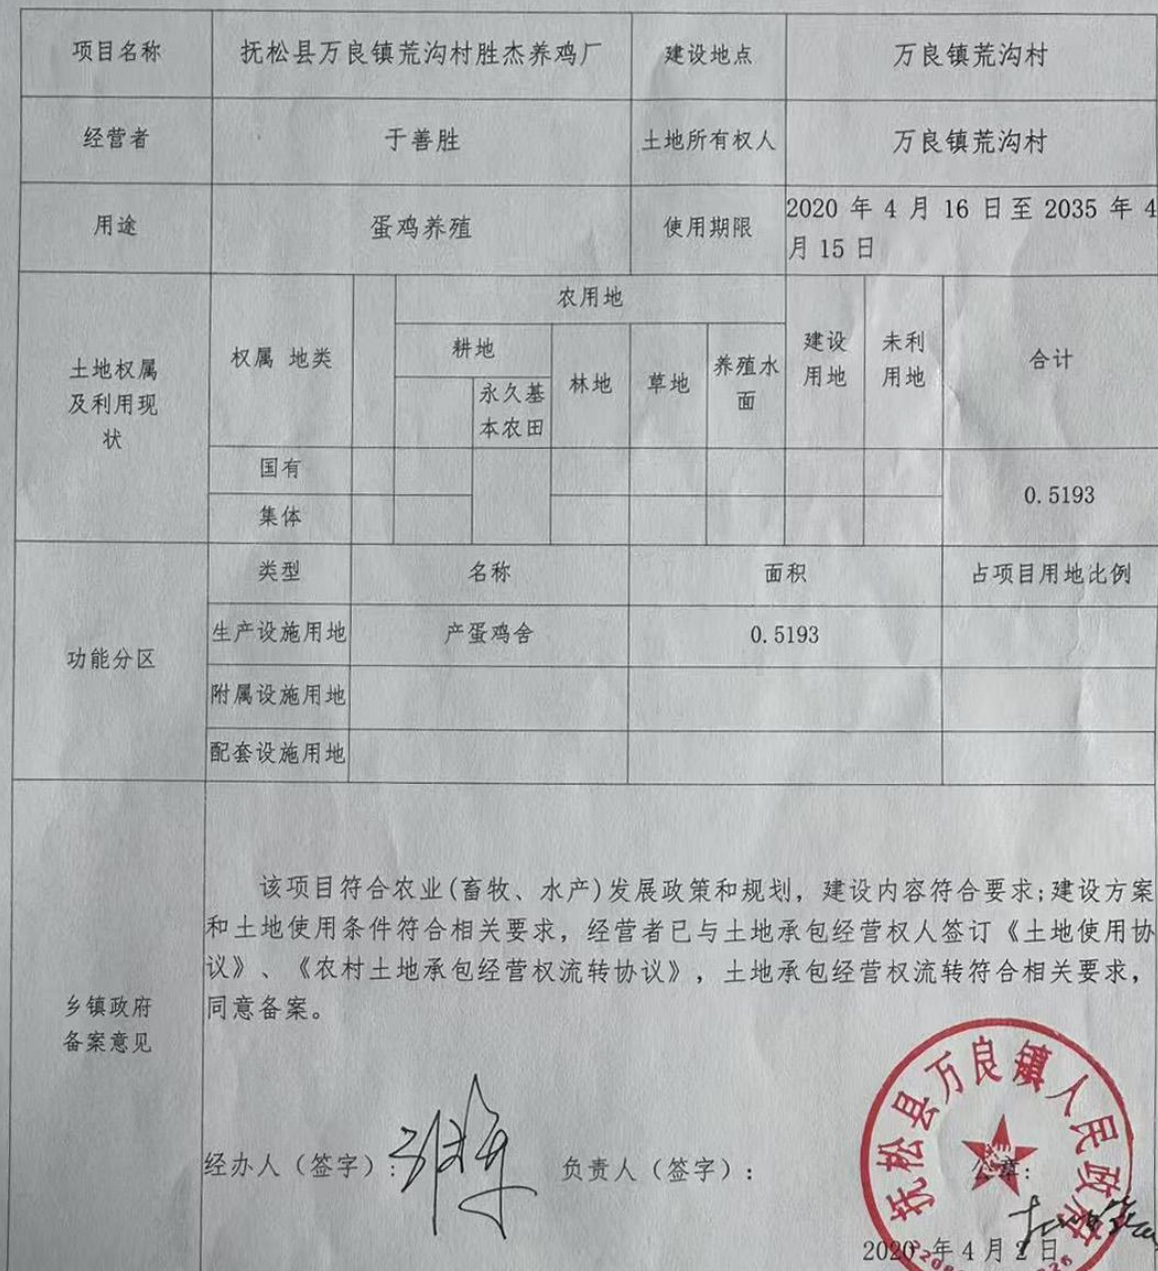 项目名称 抚松县万良镇荒沟村胜杰养鸡厂 建设地点 万良镇荒沟村
经营者 于善胜 土地所有权人 万良镇荒沟村
用途 蛋鸡养殖 使用期限 2020 年 4 月 16 日至 2035 年 4
月 15 日
土地权属
及利用现
状
权属 地类
农用地
耕地
永久基
本农田
林地
草地
养殖水
面
建设
用地
未利
用地
合计
国有
集体
0.5193
功能分区
类型 名称 面积 占项目用地比例
生产设施用地 产蛋鸡舍 0.5193
附属设施用地
配套设施用地
乡镇政府
备案意见
该项目符合农业(畜牧、水产)发展政策和规划，建设内容符合要求;建设方案
和土地使用条件符合相关要求，经营者已与土地承包经营权人签订《土地使用协
议》、《农村土地承包经营权流转协议》，土地承包经营权流转符合相关要求，
同意备案。
经办人（签字）: 负责人（签字）: 公章:
抚松县万良镇人民政府
2020 年 4 月 2 日